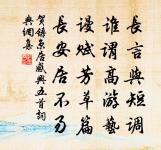 長言與短調
誰謂高游藝
謾賦芳草篇
長安居不易
賀鑄京居感興五首詞
典網集